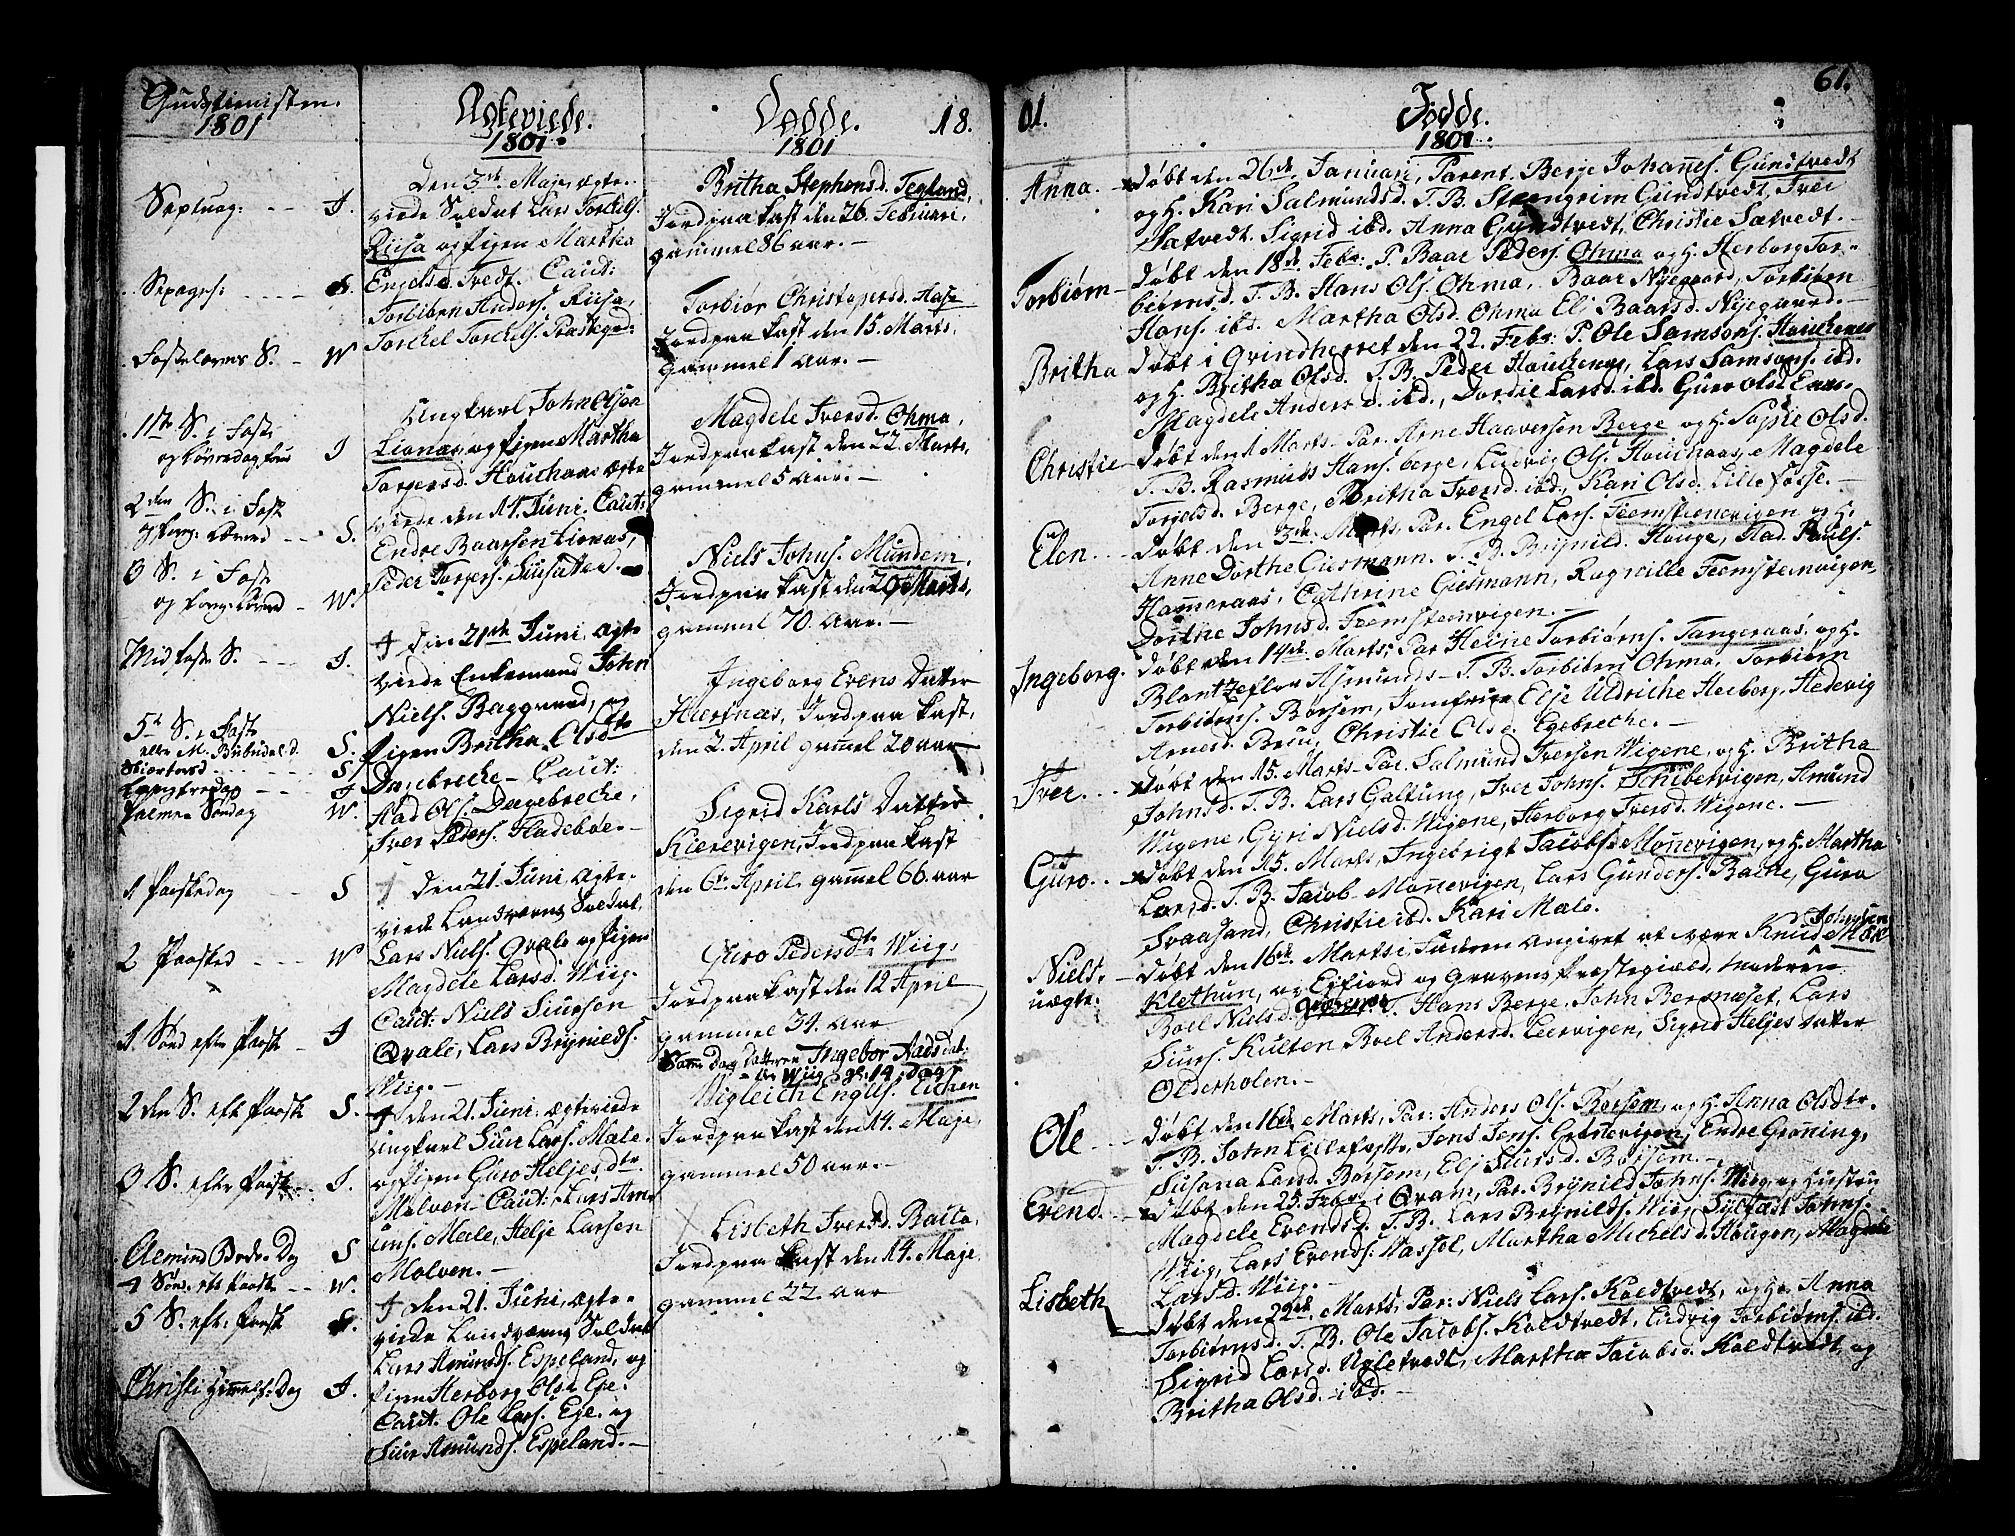 Gudstienisten
1801
Septuag: --- J.
Sexages: ---- S.
Fastelavens S. - W
1ste S. i Fast
og Løverdag før J
2den S. i Fast
og forg: Løverd -- S.
3 S. i Fast
og forg. Løverd - W.
Mid fast S. --- J.
5te S. i Fast
S.
Skiertorsd ---- S
Langfredag --- J
Palme Søndag W.
1 Paaskedag S
2 Paasked --- W
1. Sønd efter Paask - J
2den S. eft Paask S.
3 S. efter Paask - J.
Almind. Bede-Dag S
4 Sønd. eft Paask -- W.
5 S. eft. Paask S.
Christi Himmelf: Dag J.
Ægteviede.
1801.
Den 3de Maje, ægte-
viede Soldat Lars Torchels.
Riisa og Pigen Martha
Engelsd. Tvedt. Caut:
Torbiørn Anders. Riisa,
Torchel Torchels. Præstegrd:
Ungkarl John Olsen
Lionæs, og Pigen Martha
Torgersd. Houchaas ægte
viede den 14. Juni. Caut:
Endre Baarsen Lionæs,
Peder Torgers. Siusætter.
Den 21de Juni, ægte
viede Enkemand John
Niels. Baggrund, og
Pigen Britha Olsdtr
Døgebreche - Caut:
Aad Ols. Døgebreche,
Iver Peders. Fladebøe. -
Den 21. Juni, ægte-
viede Landværns Soldat,
Lars Niels. Qvale og Pigen
Magdele Larsd. Wiig.
Caut: Niels Siurson
Qvale, Lars Brynilds.
Wiig. -
Den 21. Juni: ægteviede
Ungkarl Siur Lars. Male.
og Pigen Guro Heljes dtr
Molven Caut: Lars Am-
unds. Male, Helje Larsen
Molven. -
Den 21. Juni, ægte-
viede Landværns Soldat
Lars Amunds. Espeland, og
Pigen Herborg Olsd. Eje.
Caut. Ole Lars. Eje. og
Siur Amunds. Espeland. -
Dødde. 18.
1801
Britha Stephensd. Tegland,
Jordpaakast den 26. Februari,
gammel 86 aar. -
Torbiør Christophersd. Aase
Jordpaakast den 15. Marts,
gammel 1 aar. -
Magdele Iversd. Ohma,
Jordpaakast den 22. Marts,
gammel 5 aar. -
Niels Johns. Mundem,
Jordpaakast den 29 Marts,
gammel 70. aar. -
Ingeborg Evens Datter
Hiertnæs, Jordpaakast,
den 2. April gamel 20 aar
Sigrid Karls Datter
Kierevigen, Jordpaakast
den 6te April, gamel 66. aar
Guro Pedersdtr Wiig,
Jordpaakast den 12 April
gammel 34. aar
Samme Dag datteren Ingebor Aads dat.
Wiig g: 14 dag
Wigleich Engels. Eichen
Jordpaakast den 14. Maje,
gammel 50 aar. -
Lisbeth Iversd. Bacca,
Jordpaakast den 14. Maje
gammel 22. aar
01. Fødde. 61.
1801.
Anna. - Døbt den 26de Januari, Parent. Berje Johannes. Gundtvedt
og H. Kari Salmundsd. T. B. Steengrim Gundtvedt, Iver
Sætvedt. Sigrid ibd. Anna Gundtvedt, Christie Sætvedt. -
Torbiørn - Døbt den 18de Febr: P. Baar Peders. Ohma og H. Herborg Tor-
biørnsd. T. B. Hans Ols. Ohma, Baar Nyegaard, Torbiørn
Hans. ibd. Martha Olsd. Ohma Eli Baarsd. Nyegaard. -
Britha Døbt i Qvindherret den 22. Febr: P. Ole Samsons. Houchenes
og H. Britha Olsd. T. B. Peder Houchenes, Lars Samsons. ibd.
Magdele Andersd. ibd., Dordie Larsd. ibd. Guro Olsd
Christie - Døbt den 1 Marts - Par. Arne Haaversen Berge og H. Sophie Olsd.
T. B. Rasmus Hans. berge, Ludvig Ols. Houchaas, Magdele
Torjelsd. Berge, Britha Iversd. ibd., Kari Olsd. Lille Fosse. -
Elen. - Døbt den 3de Marts, Par. Engel Lars. Steensteenevigen og H.
Anne Dorthe Giesmann. T. B. Brynild Houge, Aad Pouls.
Hammeraas, Cathrine Giesmann, Ragnille
Dorthe Johnsd.
Ingeborg. Døbt den 14de Marts, Par Heine Torbiørns. Tangeraas, og H.
Blantzeflor Asmunds - T. B. Torbiørn Ohma, Torbiørn
Torbiørns. Børsem, Jomfrue Else Uldriche Herborg Hedevig
Arnesd. Bruu, Christie Olsd. Egebreche. -
Iver. -- Døbt den 15. Marts - Par. Salmund Iversen Wigene, og H. Britha
Johnsd. T. B. Lars Galtung, Iver Johns. Schibevigen, Amund
Wigene, Gyri Nielsd. Wigene, Herborg Iversd. Wigene. -
Guro. -- Døbt den 15. Marts, Ingebrigt Jacobs. Monevigen, og H. Martha
Larsd. T. B. Jacob Monevigen, Lars Gunders. Bache, Guro
Svaasand, Christie ibd. Kari Male.
Niels, - Døbt den 16de Marts, Faderen angivet at være Knud Johnsen Mæl
uægte. Klethun, av Eifiord og Gravens Præstegield, Moderen
Boel Nielsd. T. Hans Berge. John Bersnæset, Lars
Siurs. Kulten Boel Andersd. Leervigen, Sigrid Heljes Datter
Olderholen. -
Ole -- Døbt den 16de Marts, Par: Anders Ols. Børsem, og H. Anna Olsdtr.
T. B. John Lillefosse, Jens Jens. Grønevigen, Endre Groning,
Susana Land. Børsem, Eli Siursd. Børsem. -
Evend. - Døbt den 25. Febr i Qvam, Par. Brynild Johns. Wiig og Hustru
Magdele Evendsd. T. B. Lars Brynilds. Wiig, Sylfast Johns.
Wiig, Lars Evends. Vassel, Martha Michelsd. Hougen, Magdele
Larsd. Wiig. -
Lisbeth Døbt den 22de Marts, Par: Niels Lars. Koldtvedt, og H. Anna
Torbiørnsd. T. B. Ole Jacobs. Koldtvedt, Ludvig Torbiørns. ibd.
Sigrid Larsd. Ugletvedt, Martha Jacobsd. Koldtvedt og
Britha Olsd. - ibd. -